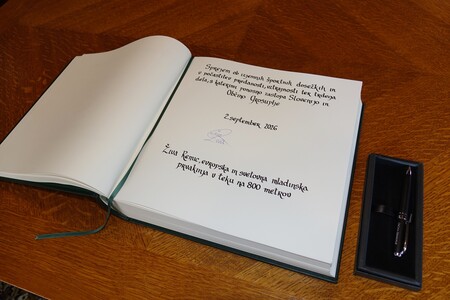 Sprejem ob izjemnih športnih dosežkih in
v počastitev predanosti, vztrajnosti ter trdega
dela, s katerim ponosno zastopa Slovenijo in
Občino Grosuplje
2. september 2026
Živa Remic, evropska in svetovna mladinska
prvakinja v teku na 800 metrov